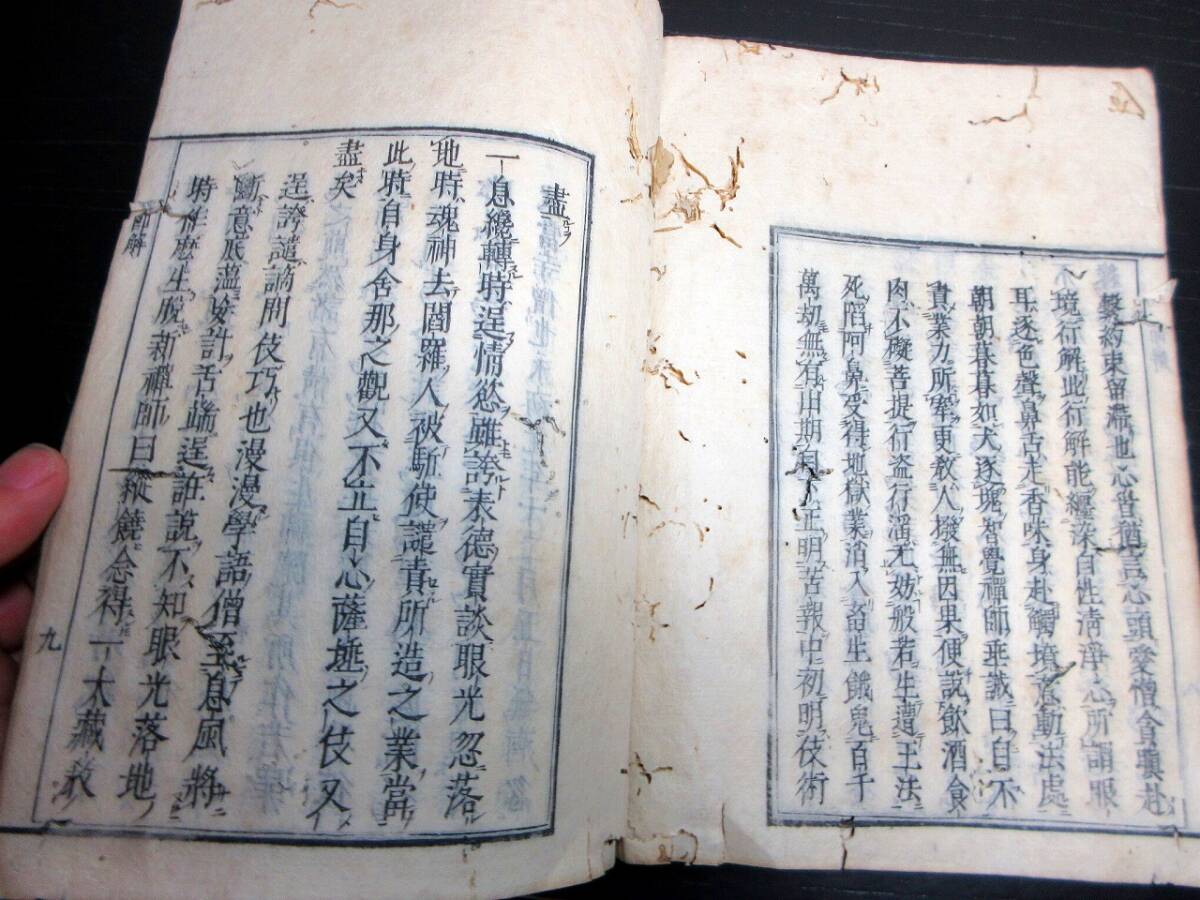 聲約束留滯也心皆猶言心頭愛憎貪瞋赴
境行解此行解能纏染自性清淨心所謂眼
耳逐色聲鼻舌走香味身赴觸境意動法處
朝朝暮暮如犬逐塊智覺禪師垂誡曰自不
責業力所牽更教人撥無因果便說飲酒食
肉不礙菩提行盜行淫无妨般若生遭王法
死陷阿鼻受得地獄業消入畜生餓鬼百千
萬劫無有出期 正明苦報中初明伎術
盡
一息纔轉時逞情慾雖誇表德實談眼光忽落
地時魂神去閻羅人被駈使謹責所造之業當
此時自身舍那之觀又不立自心薩埵之伎又
盡矣
逞誇譴謫問伎巧也漫漫學語僧至息風將
斷意底薀 計舌端逞誑說不知眼光落地
時作麼生脫新禪師曰縱饒念得一大藏教
九